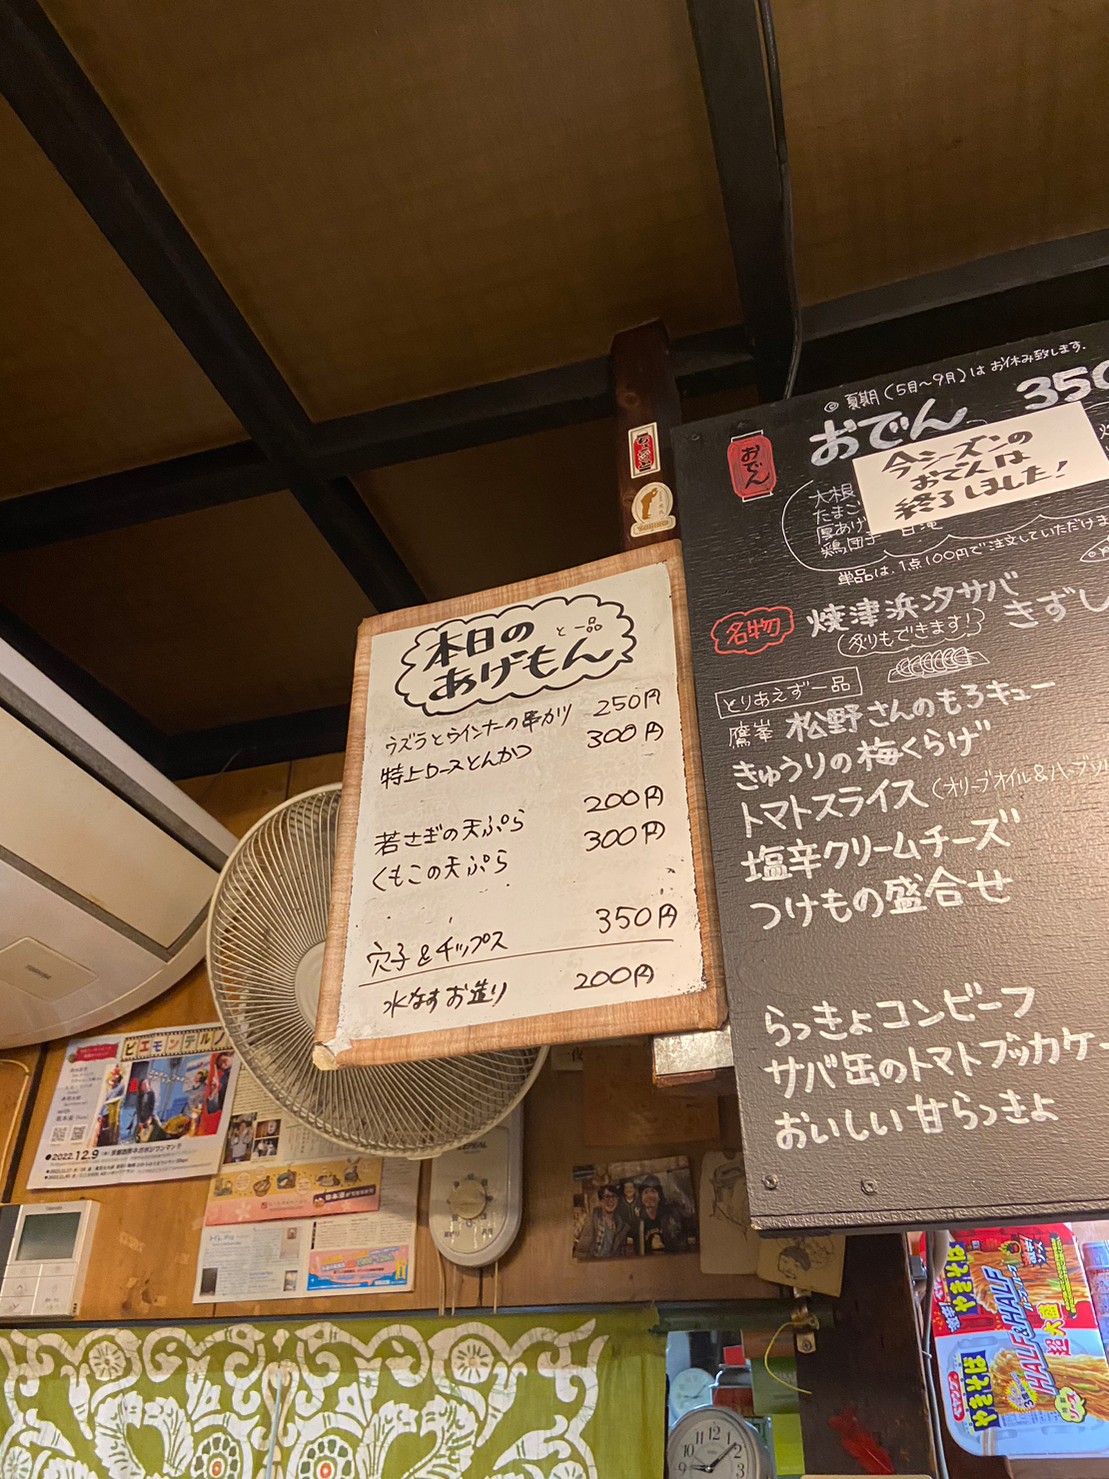 本日の
と一品
あげもん
ウズラとウインナーの串カツ 250円
特上ロースとんかつ 300円
若さぎの天ぷら 200円
くもこの天ぷら 300円
穴子&チップス 350円
水なすお造り 200円
◎夏期(5月〜9月)はお休み致します。
おでん
おでん 350
今シーズンの
おでんは
終了しました!
大根
たまご
厚あげ
鶏団子
単品は、1点100円で注文していただけま
名物
焼津浜〆サバ
きずし
炙りもできます!
とりあえず一品
鷹峯 松野さんのもろキュー
きゅうりの梅くらげ
トマトスライス(オリーブオイル&ハーブソル
塩辛クリームチーズ
つけもの盛合せ
らっきょコンビーフ
サバ缶のトマトブッカケ
おいしい甘らっきょ
ピエモンテルノ
●2022.12.9
やきそば
HALF&HALF
超大盛
やきそば